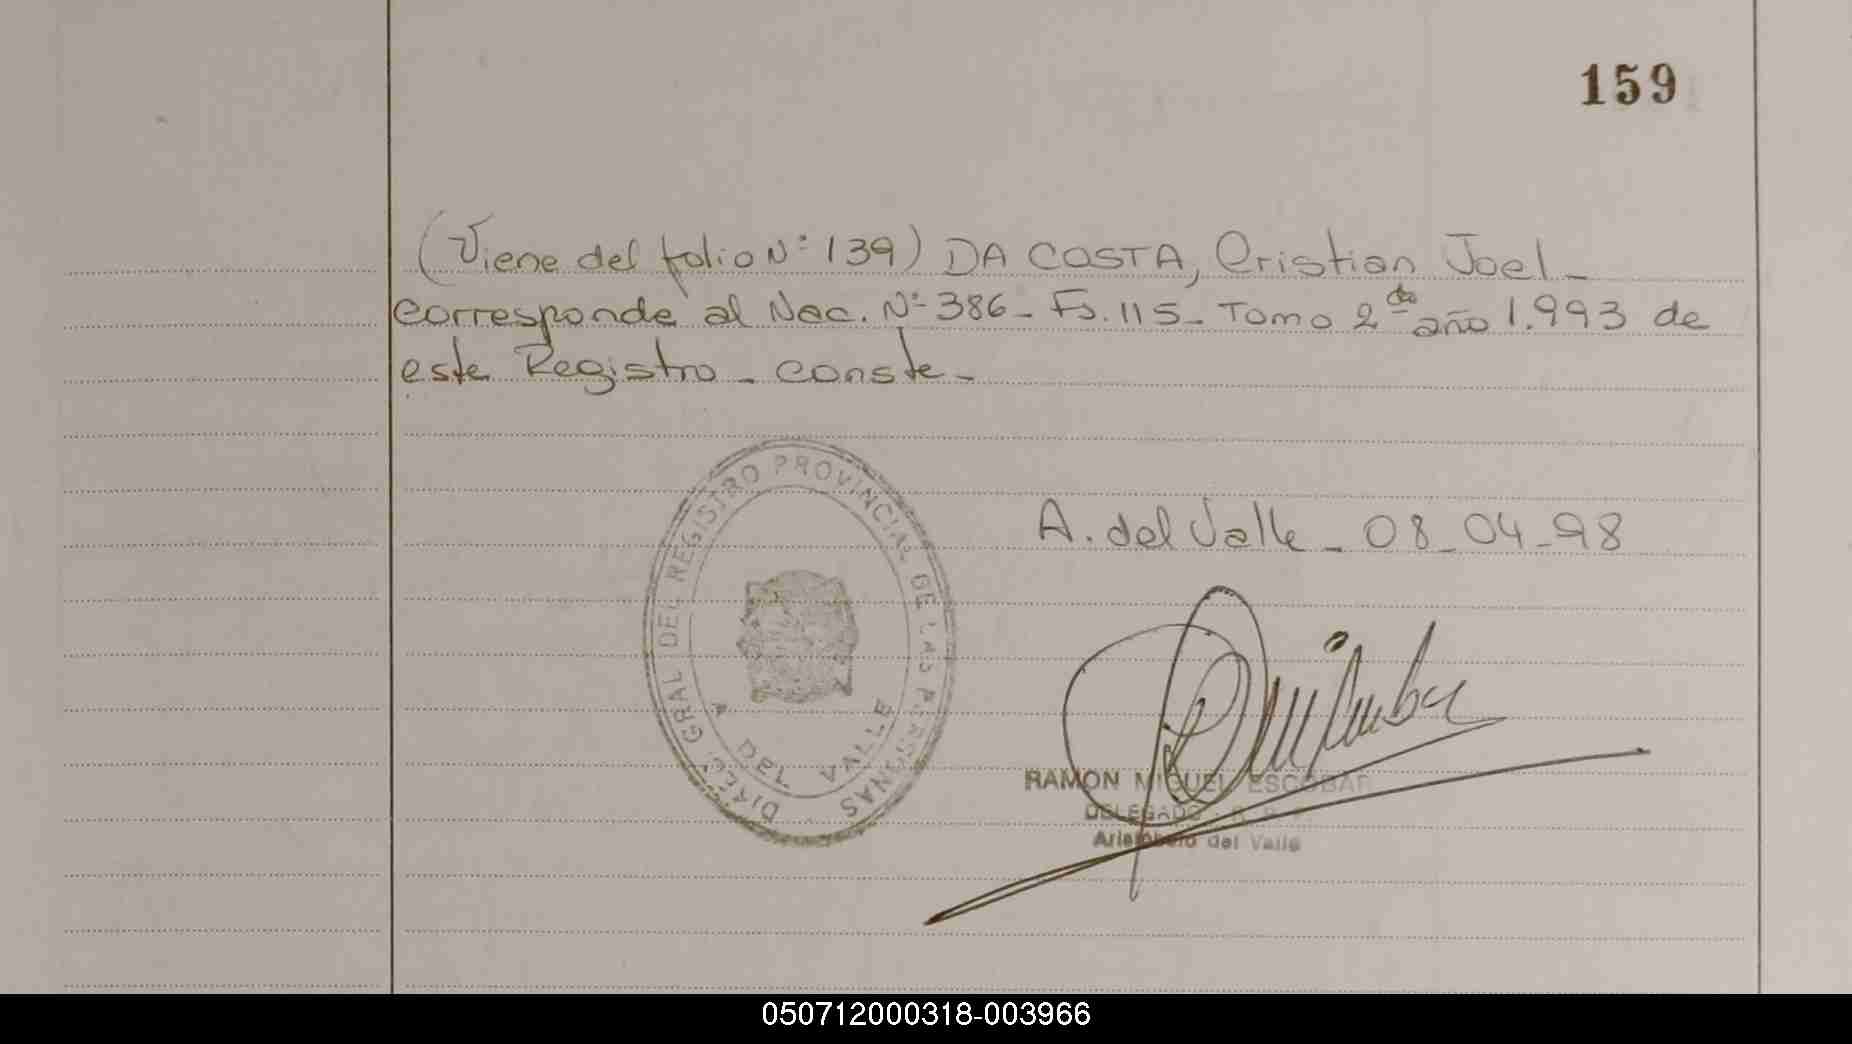 159
(Viene del folio Nº 139) DA COSTA, Cristian Joel -
corresponde al Nac. Nº 386 - Fs. 115 - Tomo 2do año 1.993 de
este Registro - conste -
DIREC. GRAL DEL REGISTRO PROVINCIAL DE LAS PERSONAS
A DEL VALLE
A. del Valle - 08 - 04 - 98
RAMON MIGUEL ESCOBAR
DELEGADO R. P.
Aristobulo del Valle
050712000318-003966